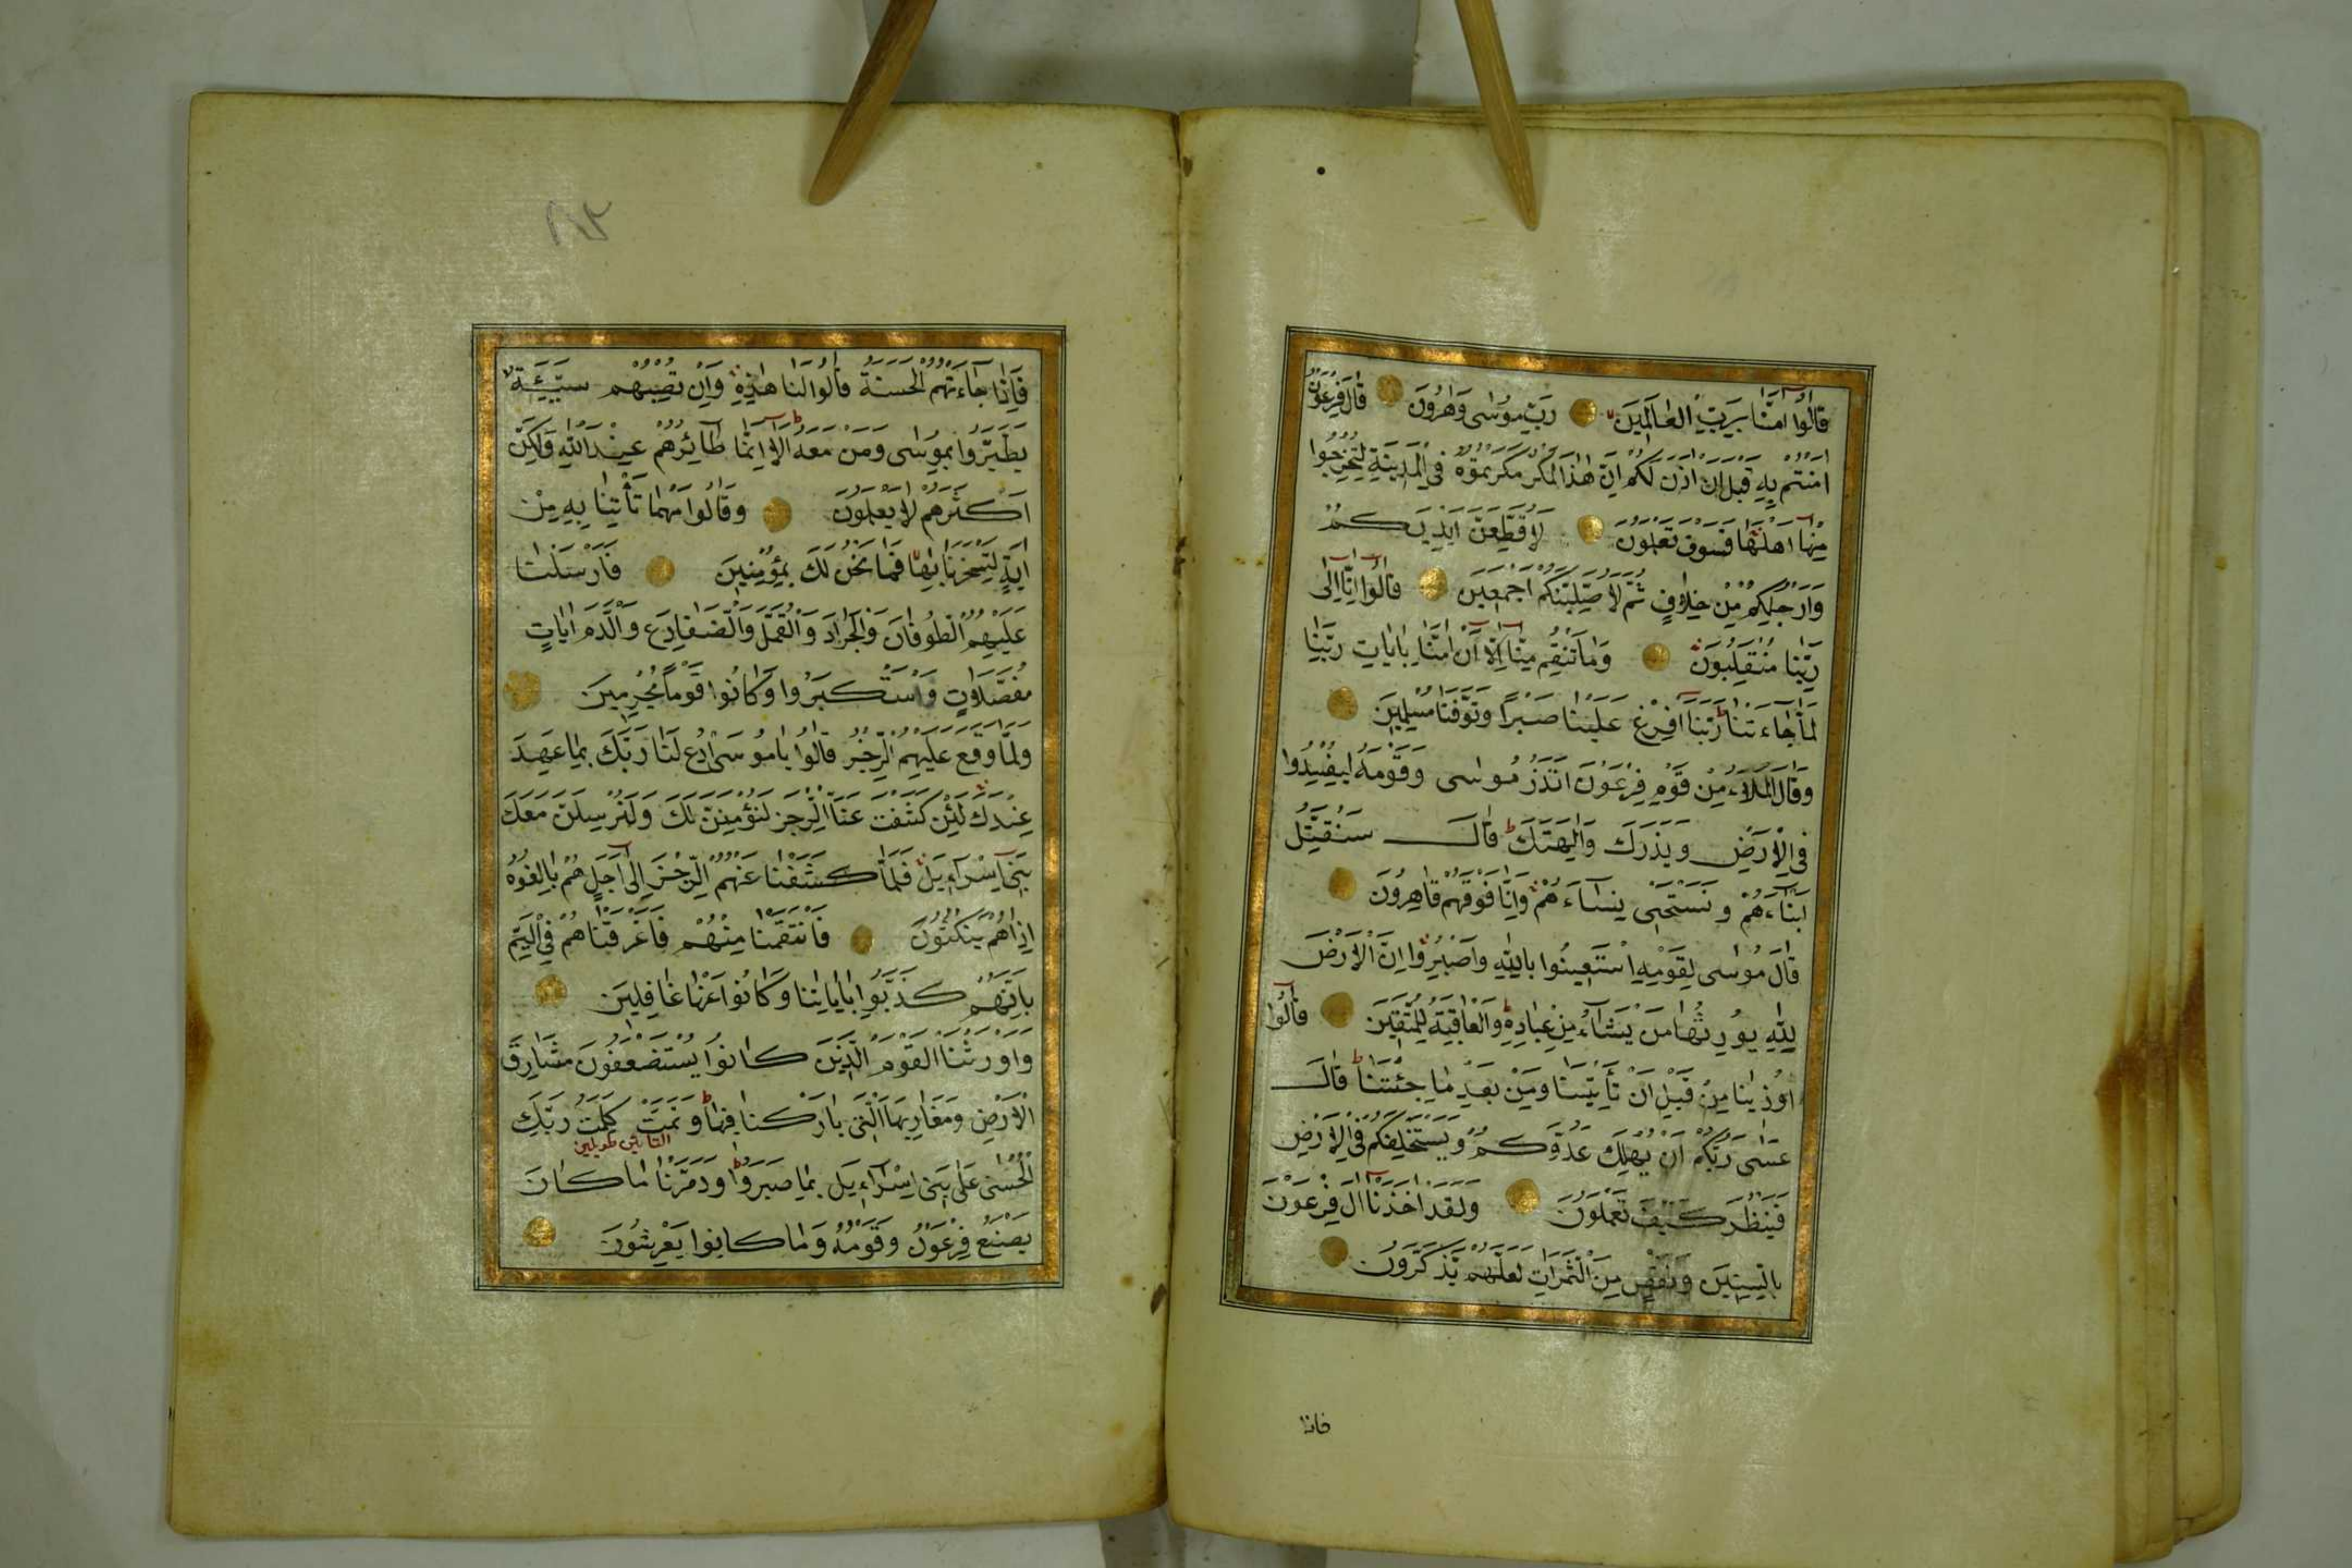 قَالُوا اٰمَنَّا بِرَبِّ الْعَالَمٖينَ رَبِّ مُوسٰى وَهٰرُونَ قَالَ فِرْعَوْنُ
اٰمَنْتُمْ بِهٖ قَبْلَ اَنْ اٰذَنَ لَكُمْ اِنَّ هٰذَا لَمَكْرٌ مَكَرْتُمُوهُ فِى الْمَدٖينَةِ لِتُخْرِجُوا
مِنْهَا اَهْلَهَا فَسَوْفَ تَعْلَمُونَ لَاُقَطِّعَنَّ اَيْدِيَكُمْ
وَاَرْجُلَكُمْ مِنْ خِلَافٍ ثُمَّ لَاُصَلِّبَنَّكُمْ اَجْمَعٖينَ قَالُوا اِنَّا اِلٰى
رَبِّنَا مُنْقَلِبُونَ وَمَا تَنْقِمُ مِنَّا اِلَّا اَنْ اٰمَنَّا بِاٰيَاتِ رَبِّنَا
لَمَّا جَاءَتْنَا رَبَّنَا اَفْرِغْ عَلَيْنَا صَبْرًا وَتَوَفَّنَا مُسْلِمٖينَ
وَقَالَ الْمَلَاُ مِنْ قَوْمِ فِرْعَوْنَ اَتَذَرُ مُوسٰى وَقَوْمَهُ لِيُفْسِدُوا
فِى الْاَرْضِ وَيَذَرَكَ وَاٰلِهَتَكَ قَالَ سَنُقَتِّلُ
اَبْنَاءَهُمْ وَنَسْتَحْيٖى نِسَاءَهُمْ وَاِنَّا فَوْقَهُمْ قَاهِرُونَ
قَالَ مُوسٰى لِقَوْمِهِ اسْتَعٖينُوا بِاللّٰهِ وَاصْبِرُوا اِنَّ الْاَرْضَ
لِلّٰهِ يُورِثُهَا مَنْ يَشَاءُ مِنْ عِبَادِهٖ وَالْعَاقِبَةُ لِلْمُتَّقٖينَ قَالُوا
اُوذٖينَا مِنْ قَبْلِ اَنْ تَأْتِيَنَا وَمِنْ بَعْدِ مَا جِئْتَنَا قَالَ
عَسٰى رَبُّكُمْ اَنْ يُهْلِكَ عَدُوَّكُمْ وَيَسْتَخْلِفَكُمْ فِى الْاَرْضِ
فَيَنْظُرَ كَيْفَ تَعْمَلُونَ وَلَقَدْ اَخَذْنَا اٰلَ فِرْعَوْنَ
بِالسِّنٖينَ وَنَقْصٍ مِنَ الثَّمَرَاتِ لَعَلَّهُمْ يَذَّكَّرُونَ
فاذا
٨٢
فَاِذَا جَاءَتْهُمُ الْحَسَنَةُ قَالُوا لَنَا هٰذِهٖ وَاِنْ تُصِبْهُمْ سَيِّئَةٌ
يَطَّيَّرُوا بِمُوسٰى وَمَنْ مَعَهُ اَلَا اِنَّمَا طَائِرُهُمْ عِنْدَ اللّٰهِ وَلٰكِنَّ
اَكْثَرَهُمْ لَا يَعْلَمُونَ وَقَالُوا مَهْمَا تَأْتِنَا بِهٖ مِنْ
اٰيَةٍ لِتَسْحَرَنَا بِهَا فَمَا نَحْنُ لَكَ بِمُؤْمِنٖينَ فَاَرْسَلْنَا
عَلَيْهِمُ الطُّوفَانَ وَالْجَرَادَ وَالْقُمَّلَ وَالضَّفَادِعَ وَالدَّمَ اٰيَاتٍ
مُفَصَّلَاتٍ فَاسْتَكْبَرُوا وَكَانُوا قَوْمًا مُجْرِمٖينَ
وَلَمَّا وَقَعَ عَلَيْهِمُ الرِّجْزُ قَالُوا يَامُوسَى ادْعُ لَنَا رَبَّكَ بِمَا عَهِدَ
عِنْدَكَ لَئِنْ كَشَفْتَ عَنَّا الرِّجْزَ لَنُؤْمِنَنَّ لَكَ وَلَنُرْسِلَنَّ مَعَكَ
بَنٖى اِسْرَاءٖيلَ فَلَمَّا كَشَفْنَا عَنْهُمُ الرِّجْزَ اِلٰى اَجَلٍ هُمْ بَالِغُوهُ
اِذَا هُمْ يَنْكُثُونَ فَانْتَقَمْنَا مِنْهُمْ فَاَغْرَقْنَاهُمْ فِى الْيَمِّ
بِاَنَّهُمْ كَذَّبُوا بِاٰيَاتِنَا وَكَانُوا عَنْهَا غَافِلٖينَ
وَاَوْرَثْنَا الْقَوْمَ الَّذٖينَ كَانُوا يُسْتَضْعَفُونَ مَشَارِقَ
الْاَرْضِ وَمَغَارِبَهَا الَّتٖى بَارَكْنَا فٖيهَا وَتَمَّتْ كَلِمَتُ رَبِّكَ
الْحُسْنٰى عَلٰى بَنٖى اِسْرَاءٖيلَ بِمَا صَبَرُوا وَدَمَّرْنَا مَا كَانَ
يَصْنَعُ فِرْعَوْنُ وَقَوْمُهُ وَمَا كَانُوا يَعْرِشُونَ